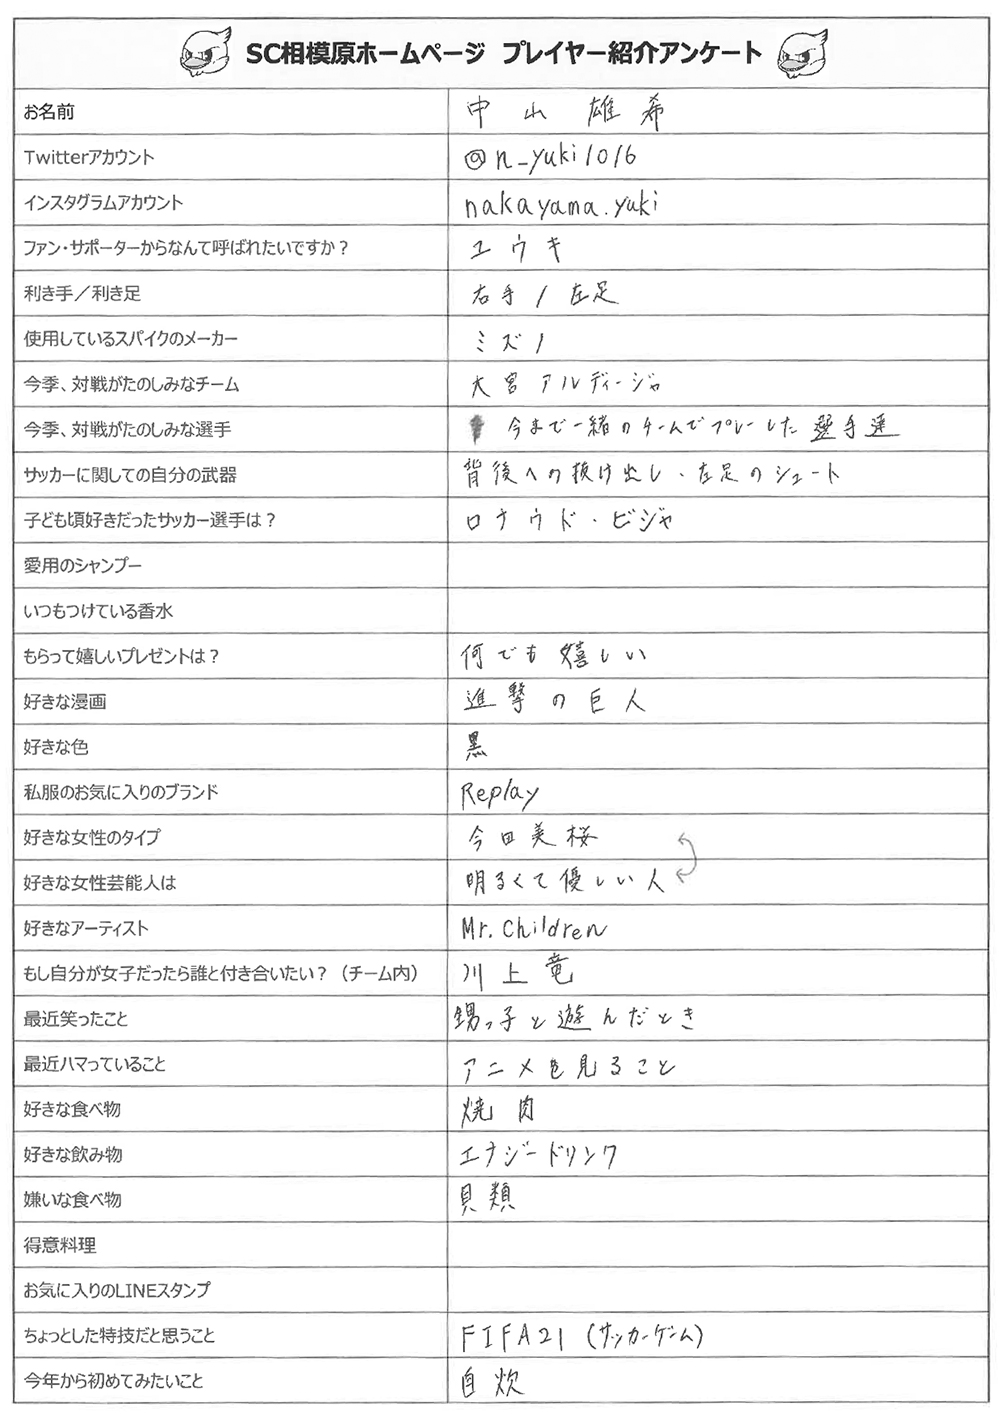 SC相模原ホームページ プレイヤー紹介アンケート
お名前 中山 雄希
Twitterアカウント @n_yuki1016
インスタグラムアカウント nakayama.yuki
ファン・サポーターからなんて呼ばれたいですか？ ユウキ
利き手／利き足 右手/左足
使用しているスパイクのメーカー ミズノ
今季、対戦がたのしみなチーム 大宮アルディージャ
今季、対戦がたのしみな選手 今まで一緒のチームでプレーした選手達
サッカーに関しての自分の武器 背後への抜け出し、左足のシュート
子ども頃好きだったサッカー選手は？ ロナウド・ビジャ
愛用のシャンプー
いつもつけている香水
もらって嬉しいプレゼントは？ 何でも嬉しい
好きな漫画 進撃の巨人
好きな色 黒
私服のお気に入りのブランド Replay
好きな女性のタイプ 今田美桜
好きな女性芸能人は 明るくて優しい人
好きなアーティスト Mr.Children
もし自分が女子だったら誰と付き合いたい？（チーム内） 川上竜
最近笑ったこと 甥っ子と遊んだとき
最近ハマっていること アニメを見ること
好きな食べ物 焼肉
好きな飲み物 エナジードリンク
嫌いな食べ物 貝類
得意料理
お気に入りのLINEスタンプ
ちょっとした特技だと思うこと FIFA21 (サッカーゲーム)
今年から初めてみたいこと 自炊